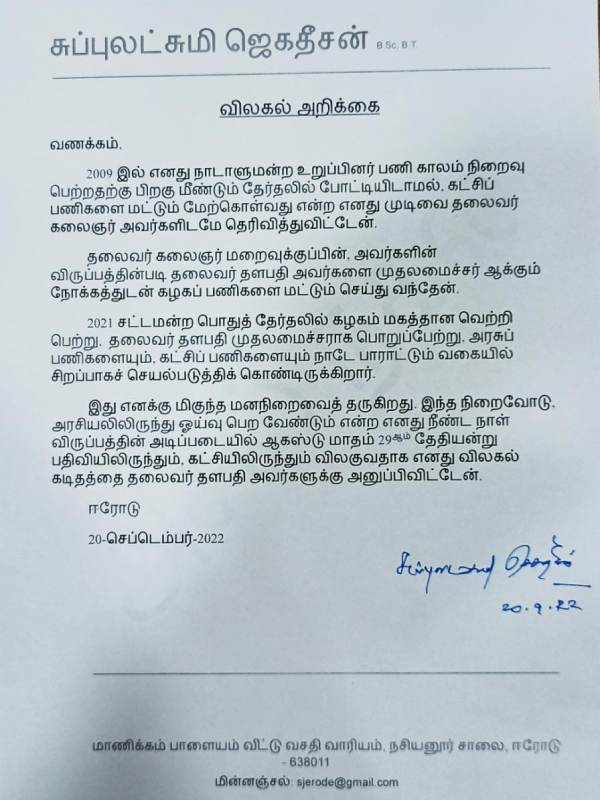 சுப்புலட்சுமி ஜெகதீசன் B.Sc, B.T.
விலகல் அறிக்கை
வணக்கம்,
2009 இல் எனது நாடாளுமன்ற உறுப்பினர் பணி காலம் நிறைவு
பெற்றதற்கு பிறகு மீண்டும் தேர்தலில் போட்டியிடாமல், கட்சிப்
பணிகளை மட்டும் மேற்கொள்வது என்ற எனது முடிவை தலைவர்
கலைஞர் அவர்களிடமே தெரிவித்துவிட்டேன்.
தலைவர் கலைஞர் மறைவுக்குப்பின், அவர்களின்
விருப்பத்தின்படி தலைவர் தளபதி அவர்களை முதலமைச்சர் ஆக்கும்
நோக்கத்துடன் கழகப் பணிகளை மட்டும் செய்து வந்தேன்.
2021 சட்டமன்ற பொதுத் தேர்தலில் கழகம் மகத்தான வெற்றி
பெற்று. தலைவர் தளபதி முதலமைச்சராக பொறுப்பேற்று, அரசுப்
பணிகளையும், கட்சிப் பணிகளையும் நாடே பாராட்டும் வகையில்
சிறப்பாகச் செயல்படுத்திக் கொண்டிருக்கிறார்.
இது எனக்கு மிகுந்த மனநிறைவைத் தருகிறது. இந்த நிறைவோடு,
அரசியலிலிருந்து ஓய்வு பெற வேண்டும் என்ற என நீண்ட நாள்
விருப்பத்தின் அடிப்படையில் ஆகஸ்டு மாதம் 29ஆம் தேதியன்று
பதிவியிலிருந்தும், கட்சியிலிருந்தும் விலகுவதாக எனது விலகல்
கடிதத்தை தலைவர் தளபதி அவர்களுக்கு அனுப்பிவிட்டேன்.
ஈரோடு
20-செப்டெம்பர்-2022
20.9.22
மாணிக்கம் பாளையம் வீட்டு வசதி வாரியம், நசியனூர் சாலை, ஈரோடு
- 638011
மின்னஞ்சல்: sjerode@gmail.com